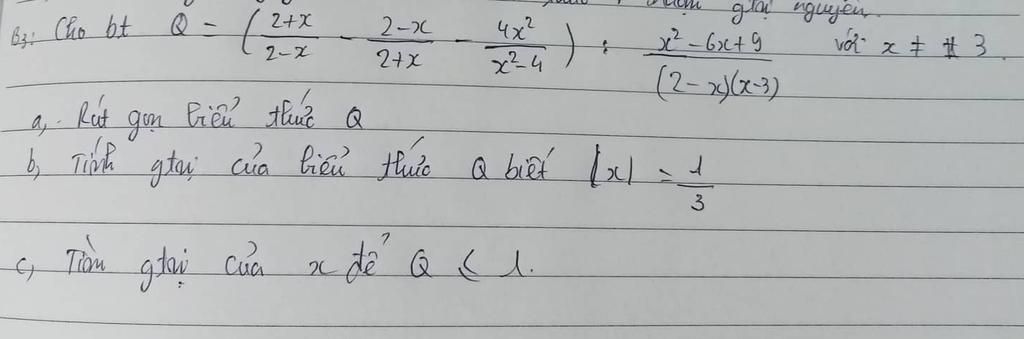 giá trị nguyên.
B3: Cho bt Q = (\frac{2+x}{2-x} - \frac{2-x}{2+x} - \frac{4x^2}{x^2-4}) : \frac{x^2-6x+9}{(2-x)(x-3)} với x ≠ 3.
a, Rút gọn biểu thức Q
b, Tính gtrị của biểu thức Q biết |x| = \frac{1}{3}
c, Tìm gtrị của x để Q ≤ 1.